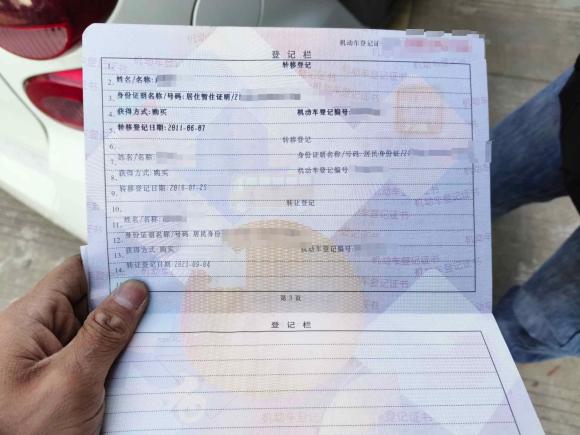 机动车登记证
登记栏
1. 转移登记
2. 姓名/名称:
3. 身份证明名称/号码:居住暂住证明/
4. 获得方式:购买 机动车登记编号:
5. 转移登记日期:2011-06-07
6. 转移登记
7. 姓名/名称: 身份证明名称/号码:居民身份证/
8. 获得方式:购买 机动车登记编号
9. 转移登记日期:2018-01-25
10. 转让登记
11. 姓名/名称:
12. 身份证明名称/号码:居民身份
13. 获得方式:购买 机动车登记编号:
14. 转让登记日期:2023-09-04
第 3 页
登记栏
机动车登记证书